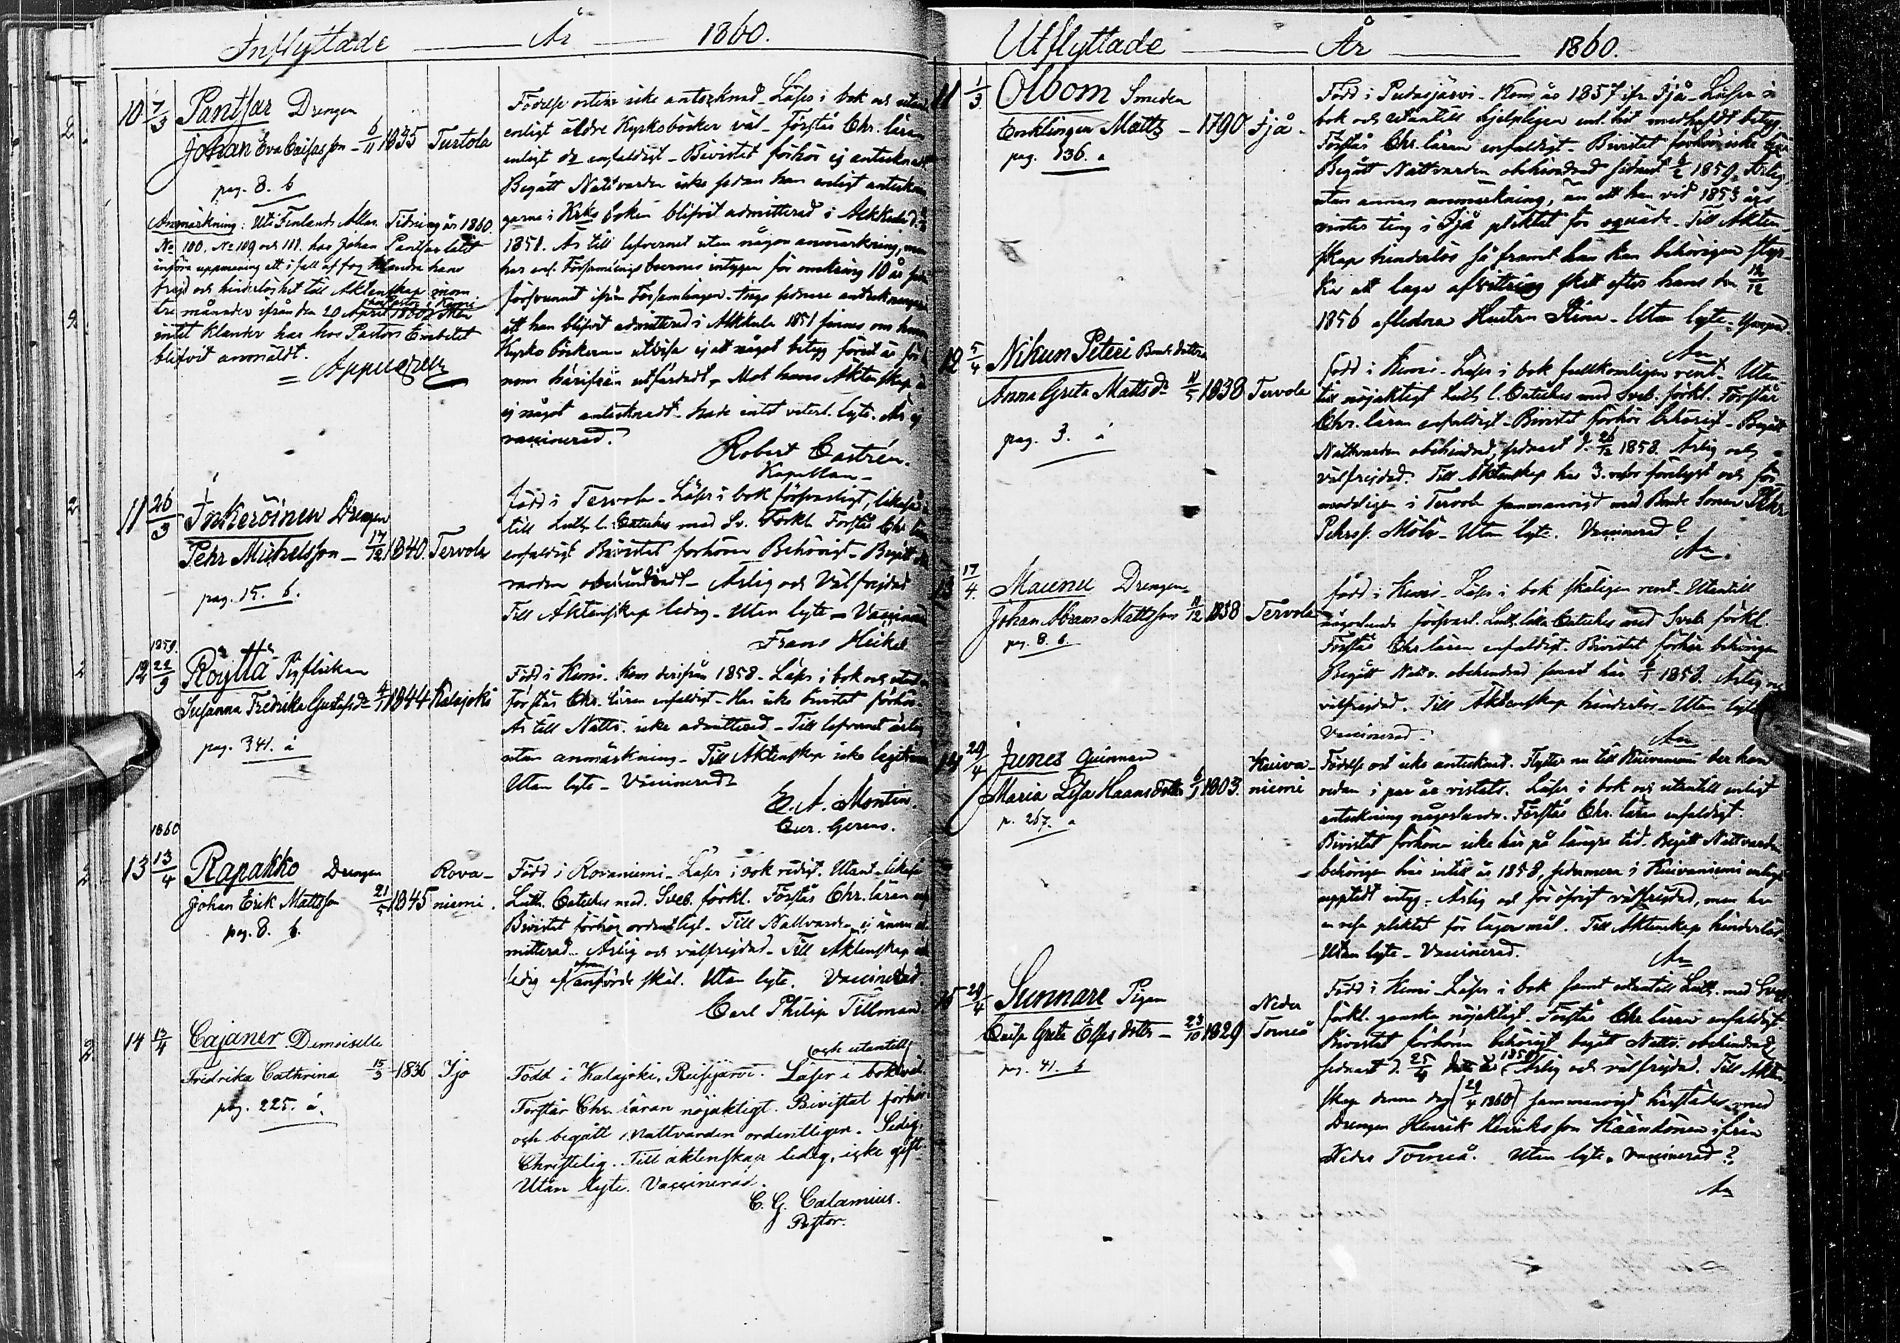 Inflyttade År 1860.
10 7/3 Pantsar Drengen
Johan Eva Caisasson 6/11 1835 Turtola
pag. 8. b
Födelse orten icke antecknad. Läser i bok och utan
enligt äldre Kyrkoböcker väl. Förstår Chr. läran
enligt dz enfaldigt. Bivistat förhör ej antecknadt
Begått Nattvarden icke sedan han enligt anteckn
garne i Krko boken blifvit admitterad i Alkkula
1851. Är till lefvernet utan någon anmärkning, men
har enl. Församlings boernes intygan för omkring 10 år sedan
försvunnit ifrån Församlingen. Inga sednare anteckningar
att han blifvit admitterad i Alkkula 1851 finnes om honom
Kyrko böckerna utvisa ej att något betyg förut är för ho
nom härifrån utfärdadt. Mot hans Äktenskap är
ej något antecknadt. hade intet vaterl. lyte. Är ej
vaccinerad.
Robert Castrén.
Kapellan
Anmärkning: Uti Finlands Allm. Tidning år 1860.
No 100, No 109 och 111. har Johan Pantsar låtit
införa uppmaning att i fall af fog klandra hans
frejd och hinderlöshet till Äktenskap inom
tre månader ifrån den 20 April 1860 hos Pastor i Kemi
intet klander har hos Pastors Embetet
blifvit anmäldt.
Appelgren
11 26/3 Inkeröinen Drengen
Pehr Michelsson 17/12 1840. Tervola
pag. 15. b.
född i Tervola. Läser i bok försvarligt, likaså
till Luth. l. Catekes med Sv. Förkl. Förstår Chr. läran
enfaldigt Bivistat förhören Behörigt. Begått Natt
varden obehindradt. Ärlig och Välfrejdad
Till Äktenskap ledig. Utan lyte. Vaccinerad
Frans Heikel
1859.
12 22/3 Röyttä Pigflickan
Susanna Fredrika Gustafsdr 1844 Kalajoki
pag. 341. a
Född i Kemi. kom derifrån 1858. Läser i bok och utantill
Förstår Chr. läran enfaldigt. Har icke bivistat förhör
Är till Nattv. icke admitterad. Till lefvernet ärlig
utan anmärkning. Till Äktenskap icke legitim
Utan lyte. Vaccinerad
E. A. Montin.
Cur. Gerens.
1860
13 13/4 Rapakko Drengen
Johan Erik Mattsson 21/5 1845 Rova-
niemi.
pag. 8. b.
Född i Rovaniemi. Läser i bok redigt. Utant. likaså
Luth. Catekes med Sveb. förkl. Förstår Chr. läran enf
Bivistat förhör ordentligt. Till Nattvarden ej ännu ad
mitterad. Ärlig och välfrejdad. Till Äktenskap
ledig af ofvan anförde skäl. Utan lyte. Vaccinerad
Carl Philip Tillman.
14 13/4 Cajaner Demoiselle
Fredrika Cathrina 15/3 1836 Ijo
pag. 225. a.
(och utantill)
Född i Kalajoki, Reisjärvi. Läser i bok väl.
Förstår Chr. läran nöjaktigt. Bivistat förhör
och begått Nattvarden ordentligen. Sedig,
Christelig. Till äktenskap ledig, icke gift
Utan lyte. Vaccinerad.
C. G. Calamnius.
Pastor.
Utflyttade År 1860.
11 1/3 Olbom Smeden
Enklingen Matts 1790 Ijå
pag. 136. a
Född i Pudasjärvi. Kom år 1857 ifr. Ijå. Läser i
bok och utantill hjelpligen enl. hit medhafdt betyg
Förstår Chr. läran enfaldigt. Bivistat förhör icke
Begått Nattvarden obehindrad sednast 1859. Ärlig
utan annan anmärkning, än att han vid 1853 års
vinter ting i Ijå pliktat för oquäde. Till Äkten-
skap hinderlös så framt han kan behörigen styr
ka att laga afvittring skett efter hans den 12/12
1856 aflidna Hustru Stina. Utan lyte.
An
12 5/4 Nikun Peteri Bonde dottren
Anna Greta Mattsdr 11/5 1838 Tervola
pag. 3. a
född i Kemi. Läser i bok fullkomligen rent. Utan
till nöjaktigt Luth. l. Catekes med Sveb. förkl. Förstår
Chr. läran enfaldigt. Bivistat förhör behörigt. Begått
Nattvarden obehindrad, sednast d. 26/12 1858. Ärlig och
välfrejdad. Till Äktenskap har 3. resor förelyst och för
modeligen i Tervola sammanvigd med Bonde Sonen Pehr
Pehrss. Mölö. Utan lyte. Vaccinerad?
An.
13 17/4 Maunu Drengen
Johan Abram Mattsson 11/12 1838 Tervola
pag. 8. a.
född i Kemi. Läser i bok skäligen rent. Utantill
någorlunda försvarl. Luth. lilla Catekes med Sveb. förkl.
Förstår Chr. läran enfaldigt. Bivistat förhör behörigen
Begått Nattv. obehindrad senast här 1858. Ärlig och
välfrejdad. Till Äktenskap hinderlös. Utan lyte
Vaccinerad.
An
14 29/4 Junes Quinnan
Maria Lisa Hansdotter 1803. Kuiva
niemi
p. 267. a
Födelse ort icke antecknad. Flyttar nu till Kuivaniemi der hon
redan i par år vistats. Läser i bok och utantill enligt
anteckning någorlunda. Förstår Chr. läran enfaldigt.
Bivistat förhören icke här på längre tid. Begått Nattvarden
behörigen här intill år 1858, sedermera i Kuivaniemi enligt
uppvist intyg. Ärlig och för öfrigt välfrejdad, men har
en resa pliktat för lägersmål. Till Äktenskap hinderlös.
Utan lyte. Vaccinerad.
An
15 29/4 Sunnare Pigan
Caisa Greta Elfsdotter 23/10 1829 Neder
Torneå
pag. 41. b
Född i Kemi. Läser i bok samt utantill Luth. med Sveb.
förkl. ganska nöjaktigt. Förstår Chr. läran enfaldigt
Bivistat förhören behörigt begått Nattv. obehindrad
sednast d. 25/4 1859. Ärlig och välfrejdad. Till Äkten
skap denna dag (29/4 1860) sammanvigd härstädes med
Drengen Henrik Henriksson Kääntönen ifrån
Neder Torneå. Utan lyte. Vaccinerad?
An